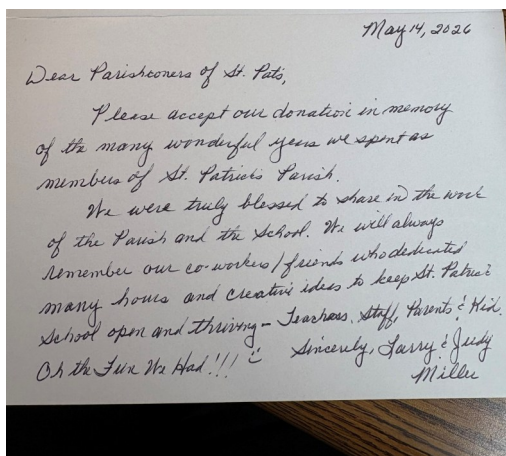 May 14, 2026
Dear Parishconers of St. Pats,
Please accept our donation in memory
of the many wonderful years we spent as
members of St. Patrick's Parish.
We were truly blessed to share in the work
of the Parish and the School. We will always
remember our co-workers/friends who dedicated
many hours and creative ideas to keep St. Patrick's
School open and thriving - Teachers, Staff, Parents & Kids.
Oh the Fun We Had!!! Sincerely, Larry & Judy
Miller